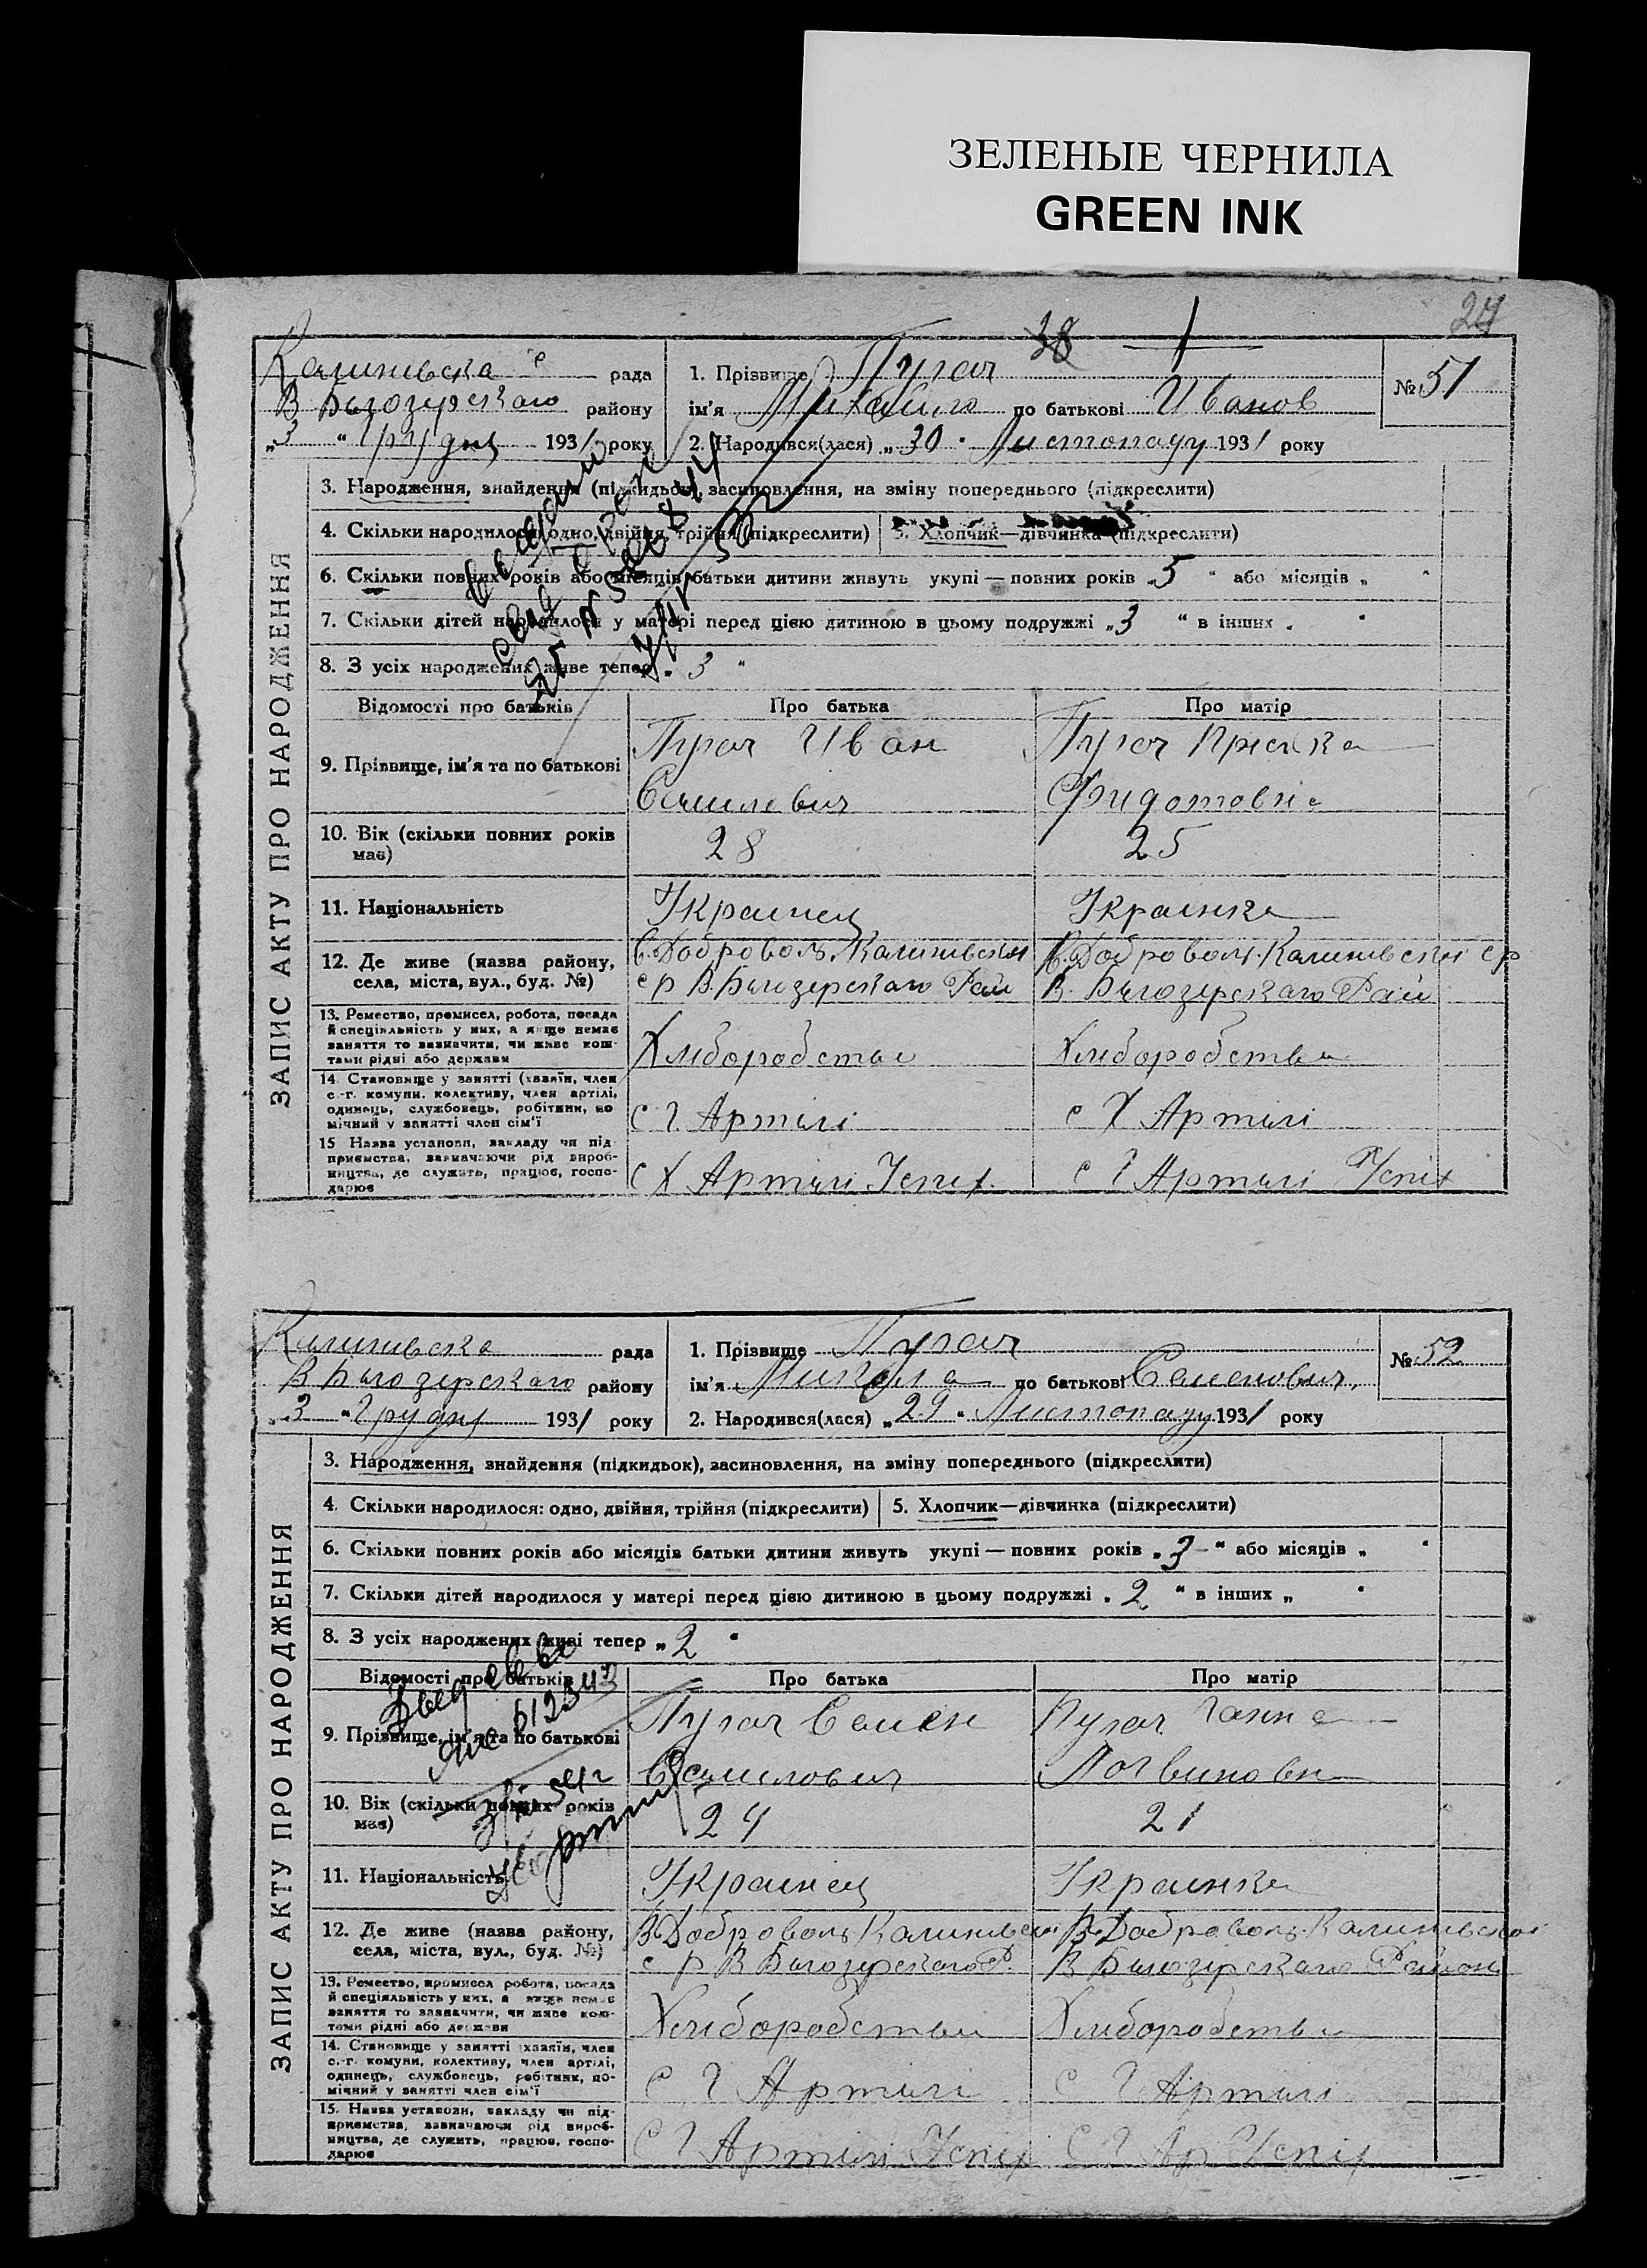 ЗЕЛЕНЫЕ ЧЕРНИЛА
GREEN INK
24
38
Калинивска с рада
В Билозерского району
„3“ Грудня 1931 року
1. Прізвище Пугач
ім'я Михайло по батькові Иванов
2. Народився(лася) „30“ Листопаду 1931 року
№ 51
ЗАПИС АКТУ ПРО НАРОДЖЕННЯ
3. Народження, знайдення (підкидьок), засиновлення, на зміну попереднього (підкреслити)
4. Скільки народилося: одно, двійня, трійня (підкреслити) 5. Хлопчик—дівчинка (підкреслити)
6. Скільки повних років або місяців батьки дитини живуть укупі — повних років „5“ або місяців „ “
7. Скільки дітей народилося у матері перед цією дитиною в цьому подружжі „3“ в інших
8. З усіх народжених живе тепер „3“
Відомості про батьків Про батька Про матір
9. Прізвище, ім'я та по батькові
Пугач Иван
Самилович
Пугач Приська
Фидотовна
10. Вік (скільки повних років має)
28
25
11. Національність
Украинец
Украинка
12. Де живе (назва району, села, міста, вул., буд. №)
с. Доброволь. Калинивской
с р В. Билозерского Рай
с. Доброволь. Калинивской с р
В. Билозерского Рай
13. Ремество, промисел, робота, посада
й спеціяльність у них, а якщо немає
заняття то зазначити, чи живе кош-
тами рідні або держави
Хлиборобством
Хлиборобства
14. Становище у занятті (хазяїн, член
с.-г. комуни, колективу, член артілі,
одинець, службовець, робітник, по-
мічний у занятті член сім'ї
с Г Артили
с Х Артили
15 Назва установи, закладу чи під-
приємства, зазначаючи рід вироб-
ництва, де служить, працює, госпо-
дарює
с Х Артили Успіх
с Г Артили Успіх
Калинивска рада
В Билозерского району
„3“ Грудня 1931 року
1. Прізвище Пугач
ім'я Микола по батькові Семенович
2. Народився(лася) „29“ Листопаду 1931 року
№ 52
ЗАПИС АКТУ ПРО НАРОДЖЕННЯ
3. Народження, знайдення (підкидьок), засиновлення, на зміну попереднього (підкреслити)
4. Скільки народилося: одно, двійня, трійня (підкреслити) 5. Хлопчик—дівчинка (підкреслити)
6. Скільки повних років або місяців батьки дитини живуть укупі — повних років „3“ або місяців „ “
7. Скільки дітей народилося у матері перед цією дитиною в цьому подружжі „2“ в інших „ “
8. З усіх народжених живі тепер „2“
Відомості про батьків Про батька Про матір
9. Прізвище, ім'я та по батькові
Пугач Семен
Самилович
Пугач Ганна
Логвиновн
10. Вік (скільки повних років має)
24
21
11. Національність
Украинец
Украинка
12. Де живе (назва району, села, міста, вул., буд. №)
В. Доброволь Калинивской
с р В Билозерского Р.
В. Доброволь. Калинивской
В Билозерского Район
13. Ремество, промисел робота, посада
й спеціяльність у них, а якщо немає
заняття то зазначити, чи живе кош-
тами рідні або держави
Хлиборобством
Хлиборобства
14. Становище у занятті (хазяїн, член
с.-г. комуни, колективу, член артілі,
одинець, службовець, робітник, по-
мічний у занятті член сім'ї
с Г Артили
с Г Артили
15. Назва установи, закладу чи під-
приємства, зазначаючи рід вироб-
ництва, де служить, працює, госпо-
дарює
с Г Артили Успіх
с Г Ар Успіх